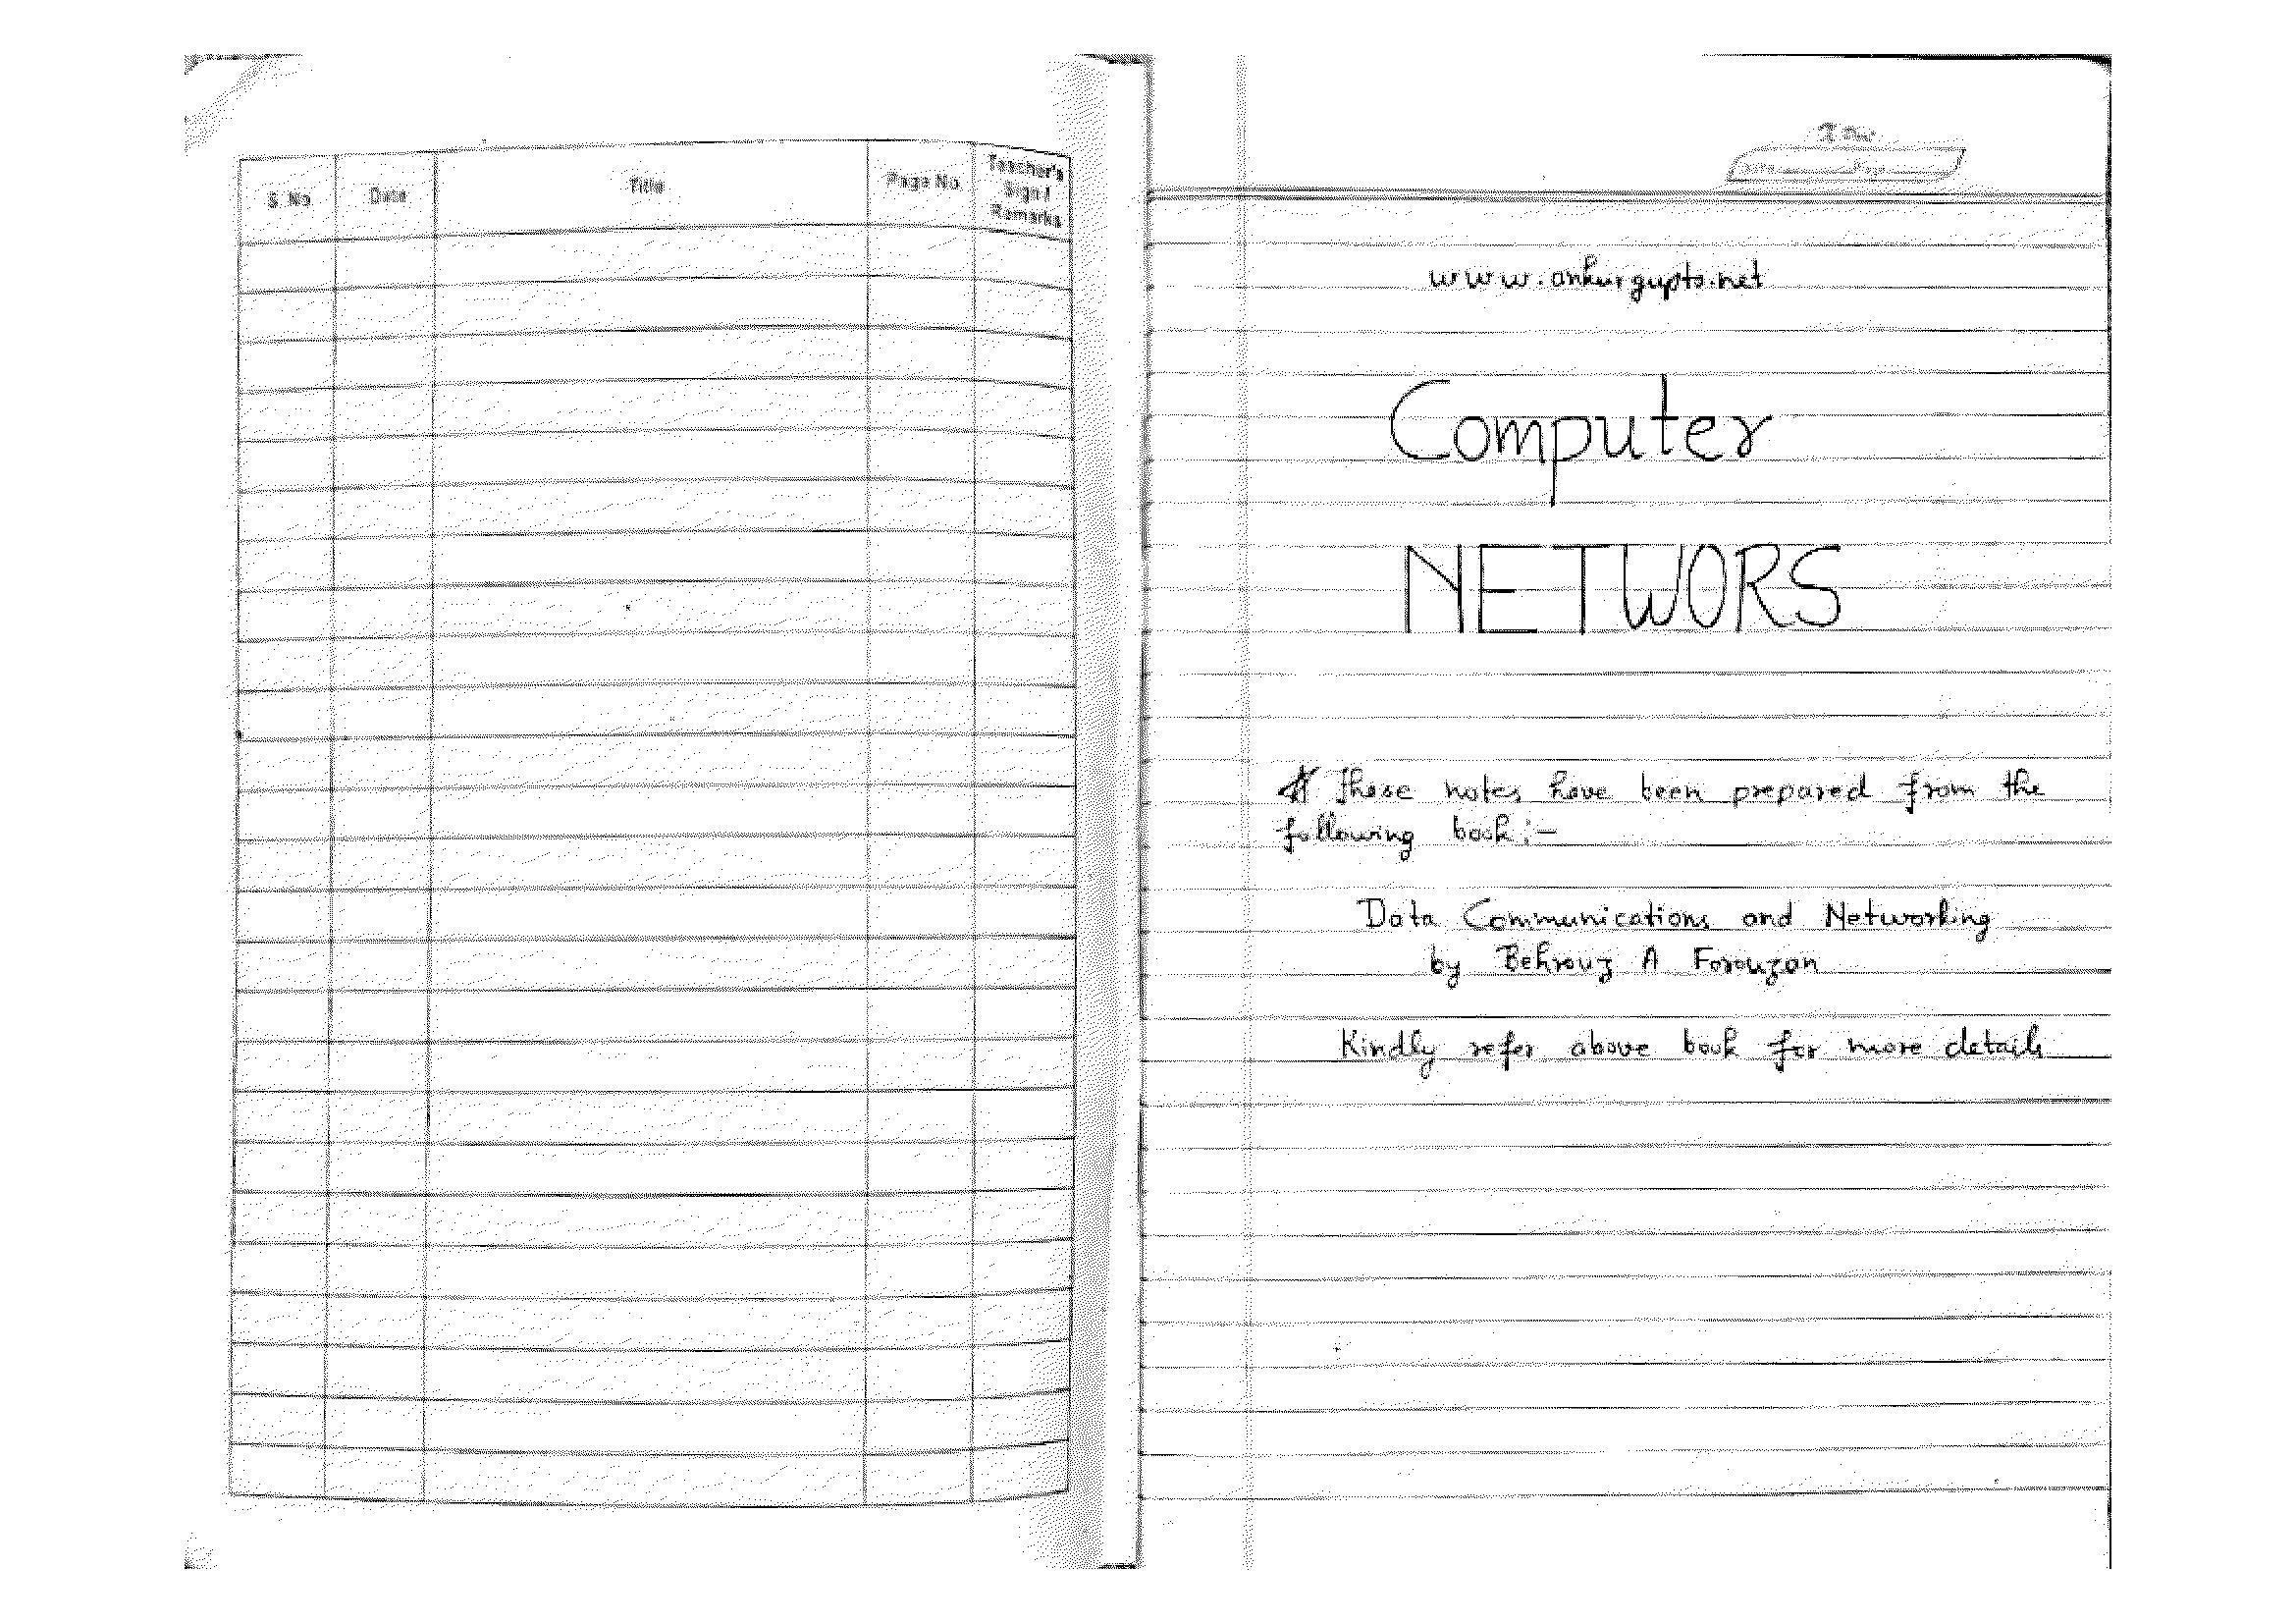 S. No.
Date
Title
Page No.
Teacher's
Sign /
Remarks
www.ankurgupta.net
Computer
NETWORS
# These notes have been prepared from the
following book:-
Data Communications and Networking
by Behrouz A Forouzan
Kindly refer above book for more details